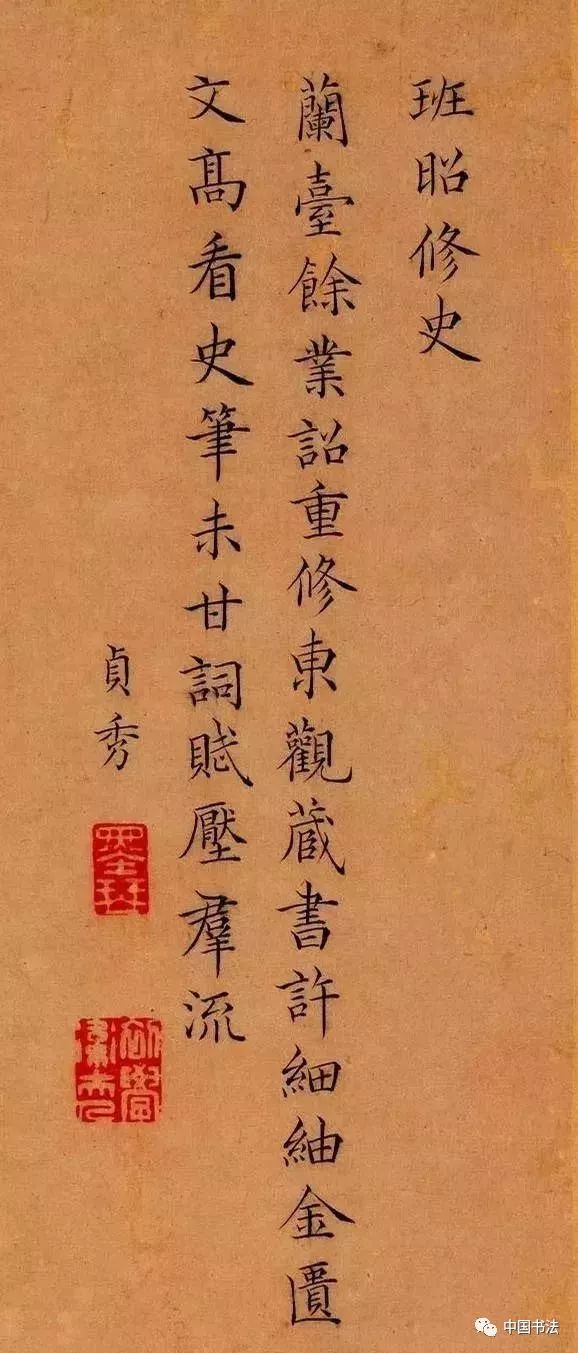 班昭修史
蘭臺餘業詔重修東觀藏書許細紬金匱
文高看史筆未甘詞賦壓羣流
貞秀
中国书法